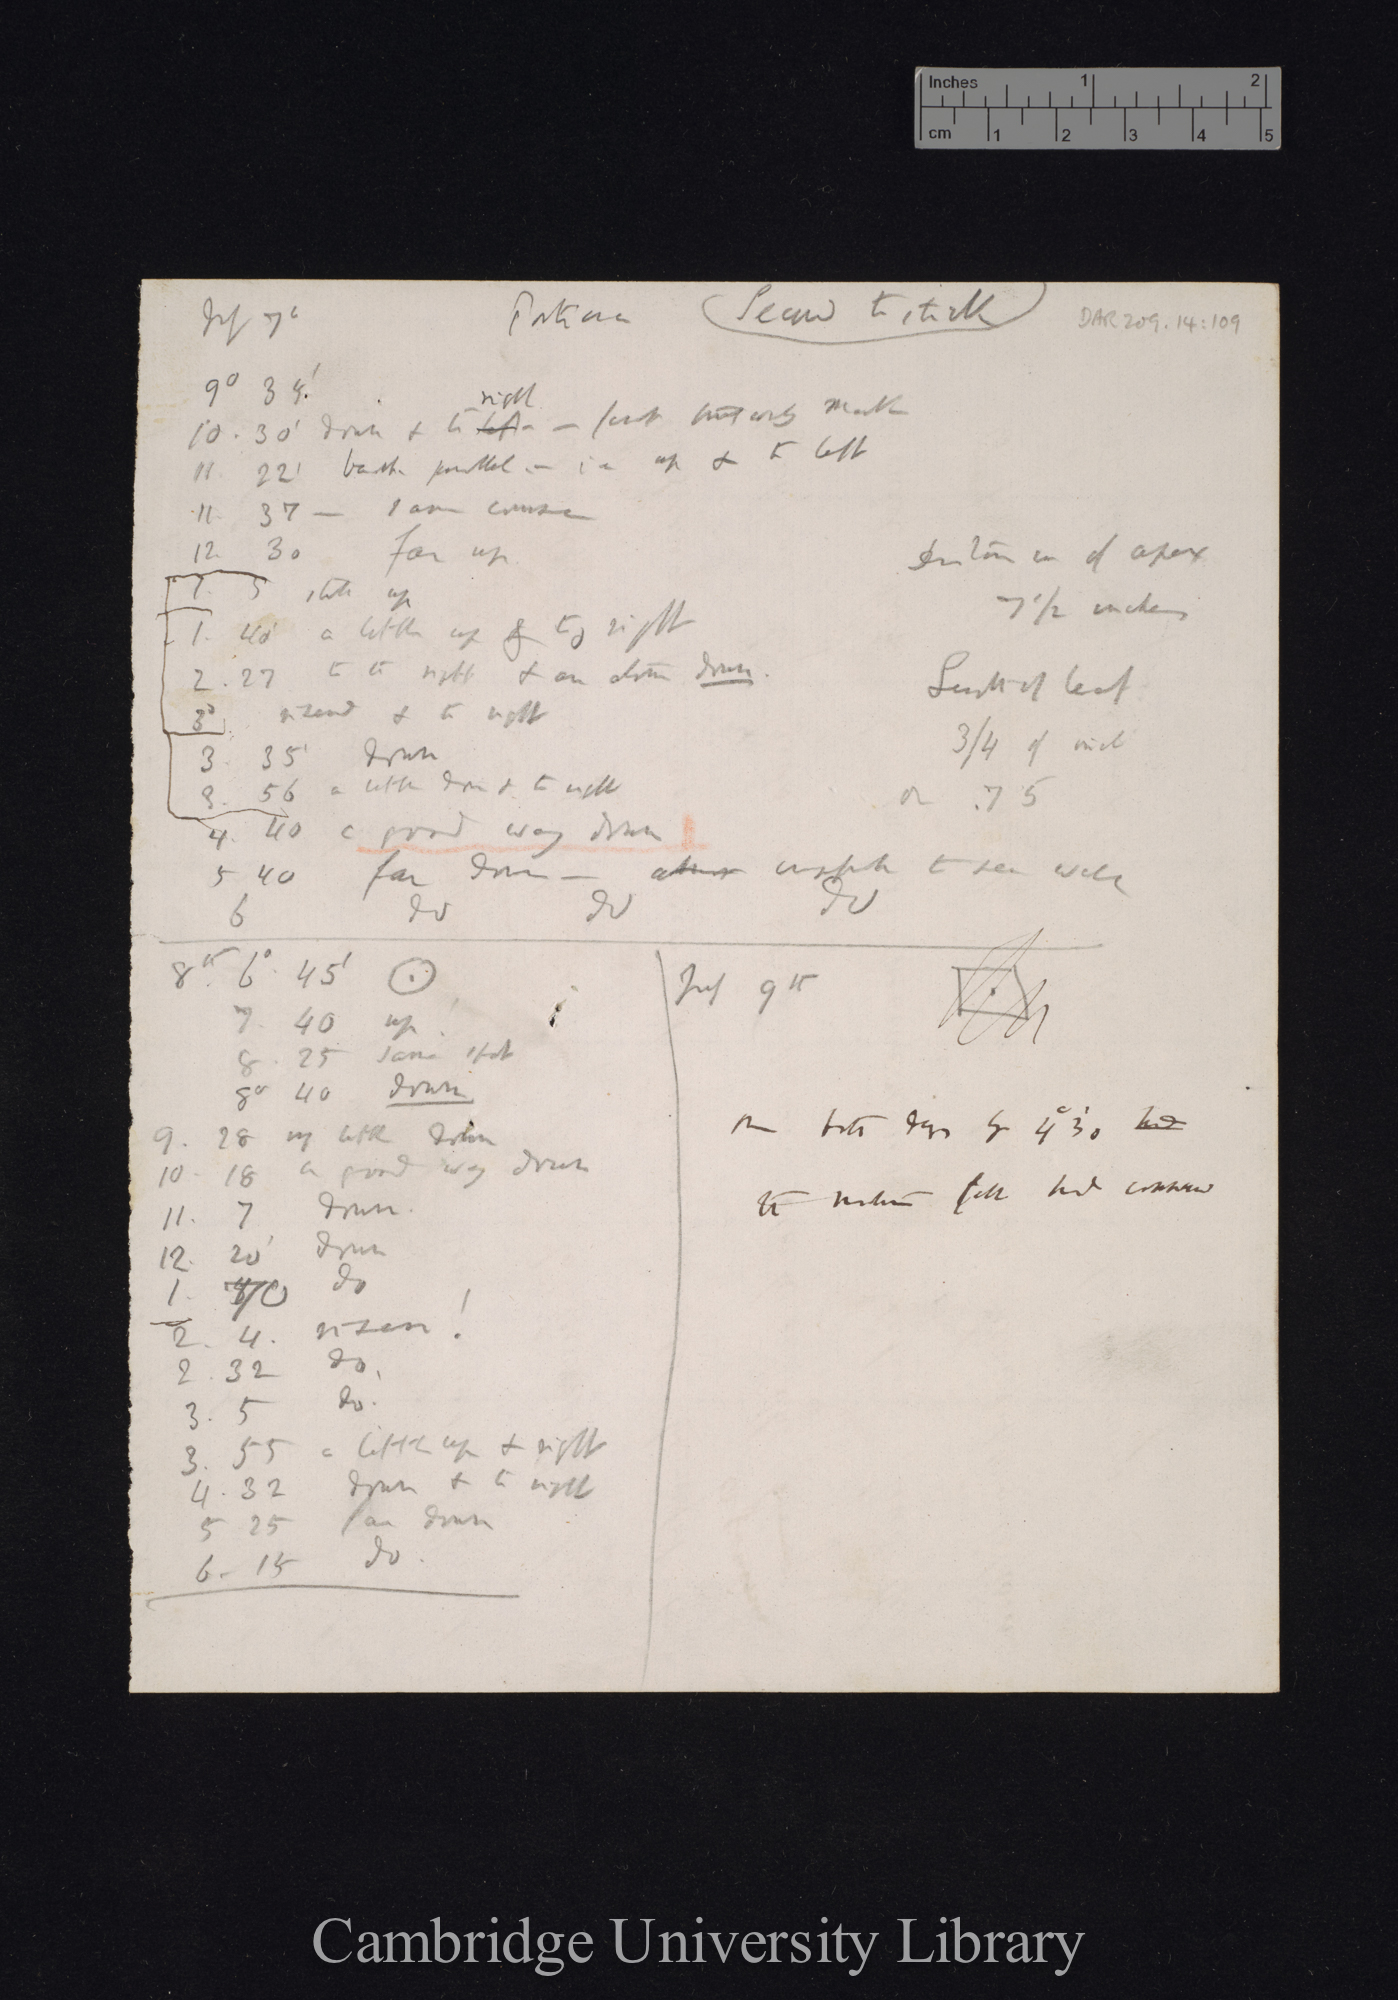 Inches 1 2
cm 1 2 3 4 5
July 7th Secured to stick DAR 209.14:109
9° 34'
right
10. 30' down & to left
11. 22' up & to left
11. 37 — same course
12. 30 far up
1. 5 still up
1. 40 a little up & to right
2. 27 to right down.
3° risen & to right
3. 35' down
3. 56 a little down & to right
4. 40 a good way down
5 40 far down — almost to see well
6 do do do
of apex
7 1/2 inches
Length of leaf
3/4 of inch
or .75
8th 6° 45'
7. 40 up!
8. 25 same spot
8° 40 down
9. 28 little down
10. 18 a good way down
11. 7 down.
12. 20' down
1. do
2. 4. risen!
2. 32 do.
3. 5 do.
3. 55 a little up & right
4. 32 down & to right
5 25 far down
6. 15 do.
July 9th
On both days by 4° 30' had
the fall had commenced
Cambridge University Library